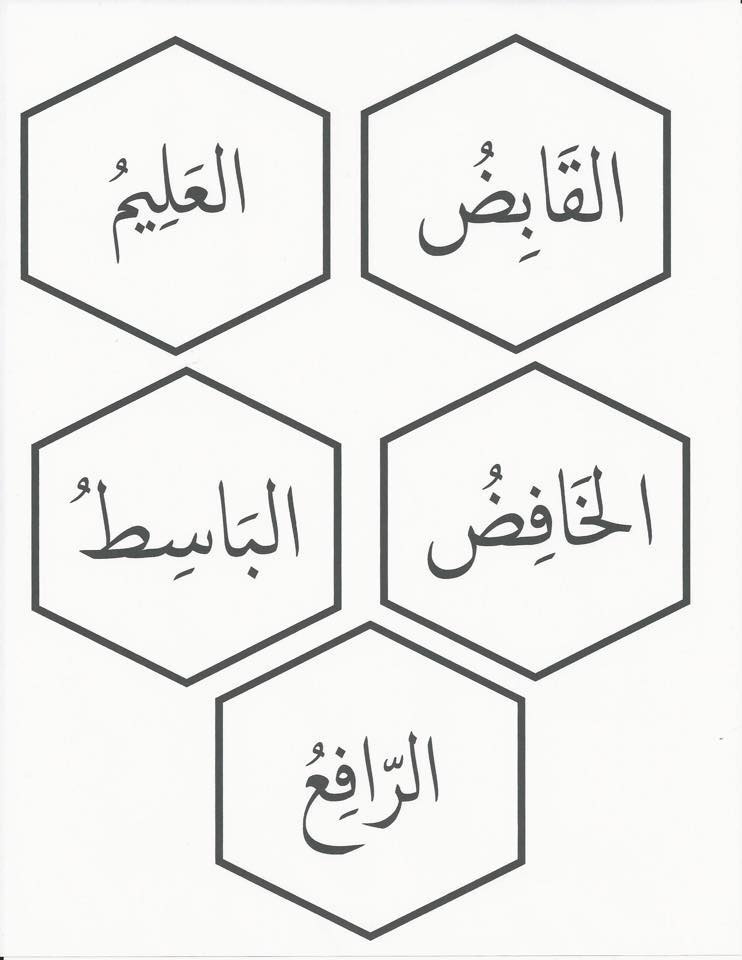 القَابِضُ
العَلِيمُ
الخَافِضُ
البَاسِطُ
الرّافِعُ